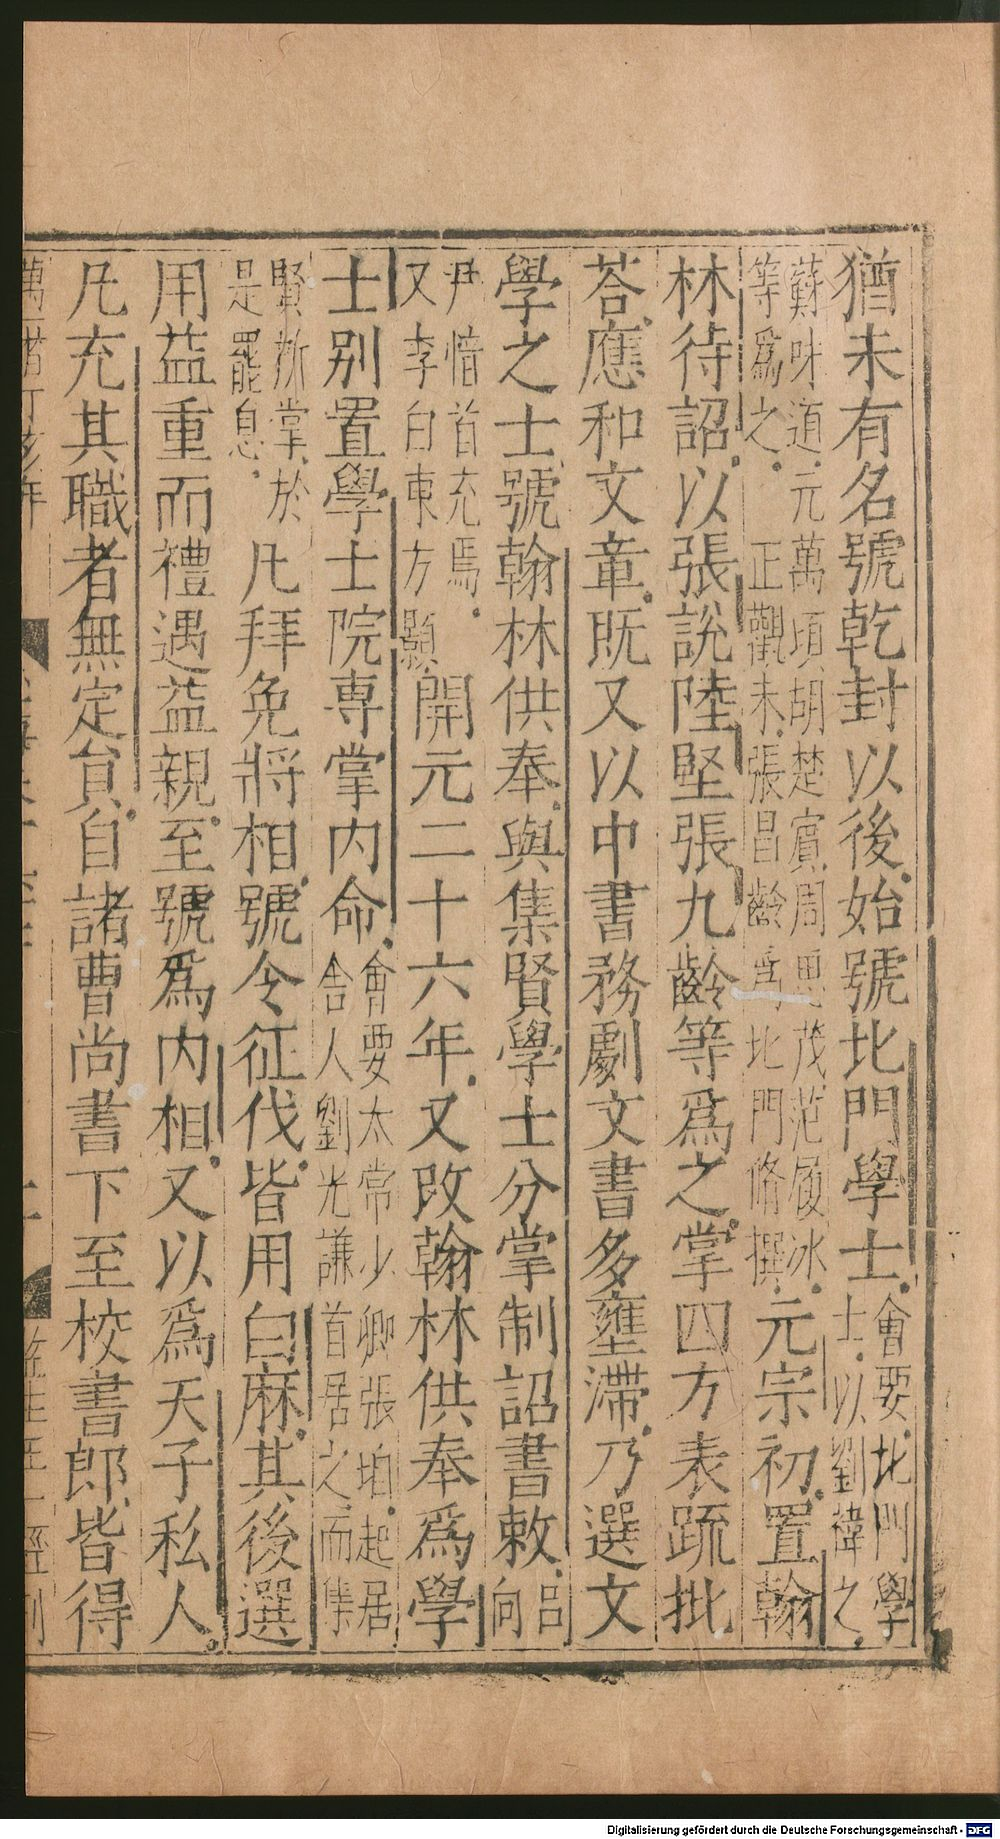 猶未有名號乾封以後始號北門學士會要北門學士以劉禕之
蘇味道元萬頃胡楚賓周思茂范履冰等爲之正觀末張昌齡爲北門脩撰元宗初置翰
林待詔以張說陸堅張九齡等爲之掌四方表䟽批
荅應和文章既又以中書務劇文書多壅滯乃選文
學之士號翰林供奉與集賢學士分掌制詔書敕呂向
尹愔首充焉又李白東方顥開元二十六年又改翰林供奉爲學
士別置學士院専掌内命會要太常少卿張垍起居舍人劉光謙首居之而集
賢所掌於是罷息凡拜免將相號令征伐皆用白麻其後選
用益重而禮遇益親至號爲内相又以爲天子私人
凡充其職者無定貟自諸曹尚書下至校書郎皆得
Digitalisierung gefördert durch die Deutsche Forschungsgemeinschaft - DFG